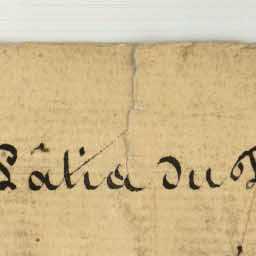 Pâtia du